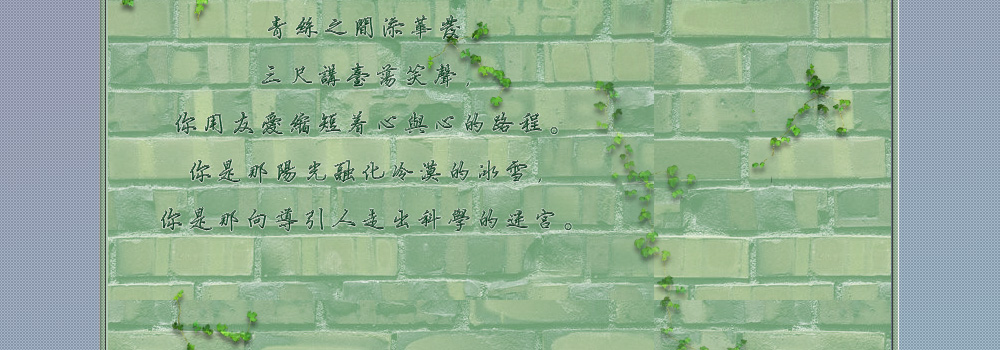 青絲之間添華發
三尺講臺蕩笑聲，
你用友愛縮短着心與心的路程。
你是那陽光融化冷漠的冰雪，
你是那向導引人走出科學的迷宮。